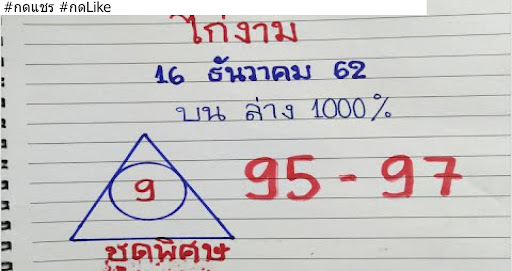 #กดแชร์ #กดLike
ไก่งาม
16 ธันวาคม 62
บน ล่าง 1000%
9
95-97
ชุดพิเศษ